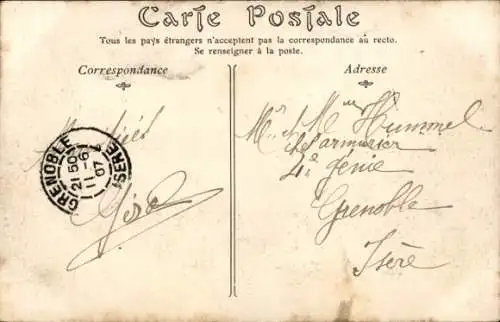 Carte Postale
Tous les pays étrangers n'acceptent pas la correspondance au recto.
Se renseigner à la poste.
Correspondance
Adresse
GRENOBLE
21 50
11-6
07
ISÈRE
Mr & Mme Hummel
chef armurier
4e Génie
Grenoble
Isère